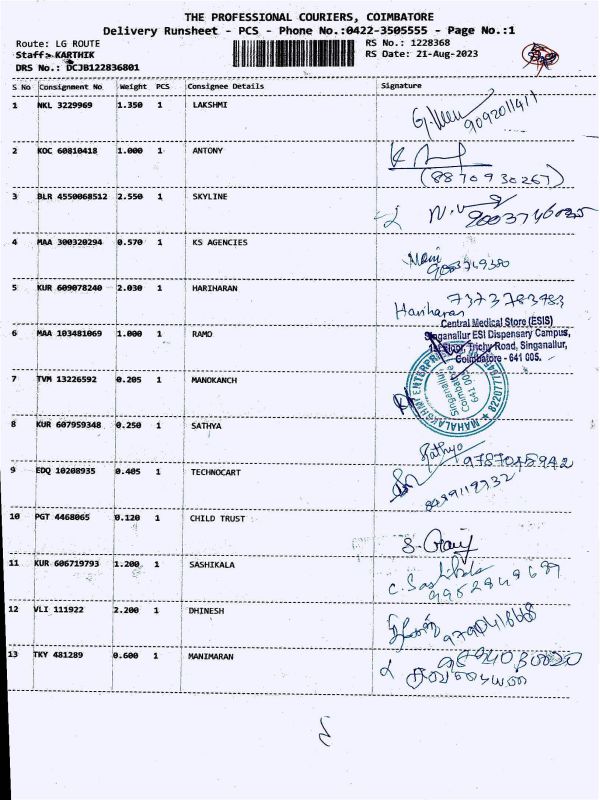 THE PROFESSIONAL COURIERS, COIMBATORE
Delivery Runsheet - PCS - Phone No.:0422-3505555 - Page No.:1
Route: LG ROUTE RS No.: 1228368
Staff: KARTHIK RS Date: 21-Aug-2023
DRS No.: DCJB122836801
S No Consignment No Weight PCS Consignee Details Signature
1 NKL 3229969 1.350 1 LAKSHMI
9092011411
2 KOC 60810418 1.000 1 ANTONY
(8870930267)
3 BLR 4550068512 2.550 1 SKYLINE
4 MAA 300320294 0.570 1 KS AGENCIES
Mani
5 KUR 609078240 2.030 1 HARIHARAN
7373783983
Hariharan
Central Medical Store (ESIS)
Singanallur ESI Dispensary Campus,
1st Floor, Trichy Road, Singanallur,
Coimbatore - 641 005.
6 MAA 103481069 1.000 1 RAMO
7 TVM 13226592 0.205 1 MANOKANCH
MAHALAKSHMI ENTERPRISES
Singanallur,
Coimbatore
641 005
8 KUR 607959348 0.250 1 SATHYA
Sathya
9 EDQ 10208935 0.405 1 TECHNOCART
10 PGT 4468065 0.120 1 CHILD TRUST
11 KUR 606719793 1.200 1 SASHIKALA
C. Sashikala
12 VLI 111922 2.200 1 DHINESH
13 TKY 481289 0.600 1 MANIMARAN